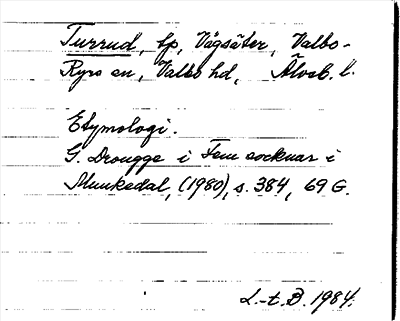 Turrud, tp, Vågsäter, Valbo-
Ryrs sn, Valbo hd, Älvsb. l.
Etymologi.
G. Drougge i Fem socknar i
Munkedal, (1980), s. 384, 69 G.
L.-t. B. 1984.